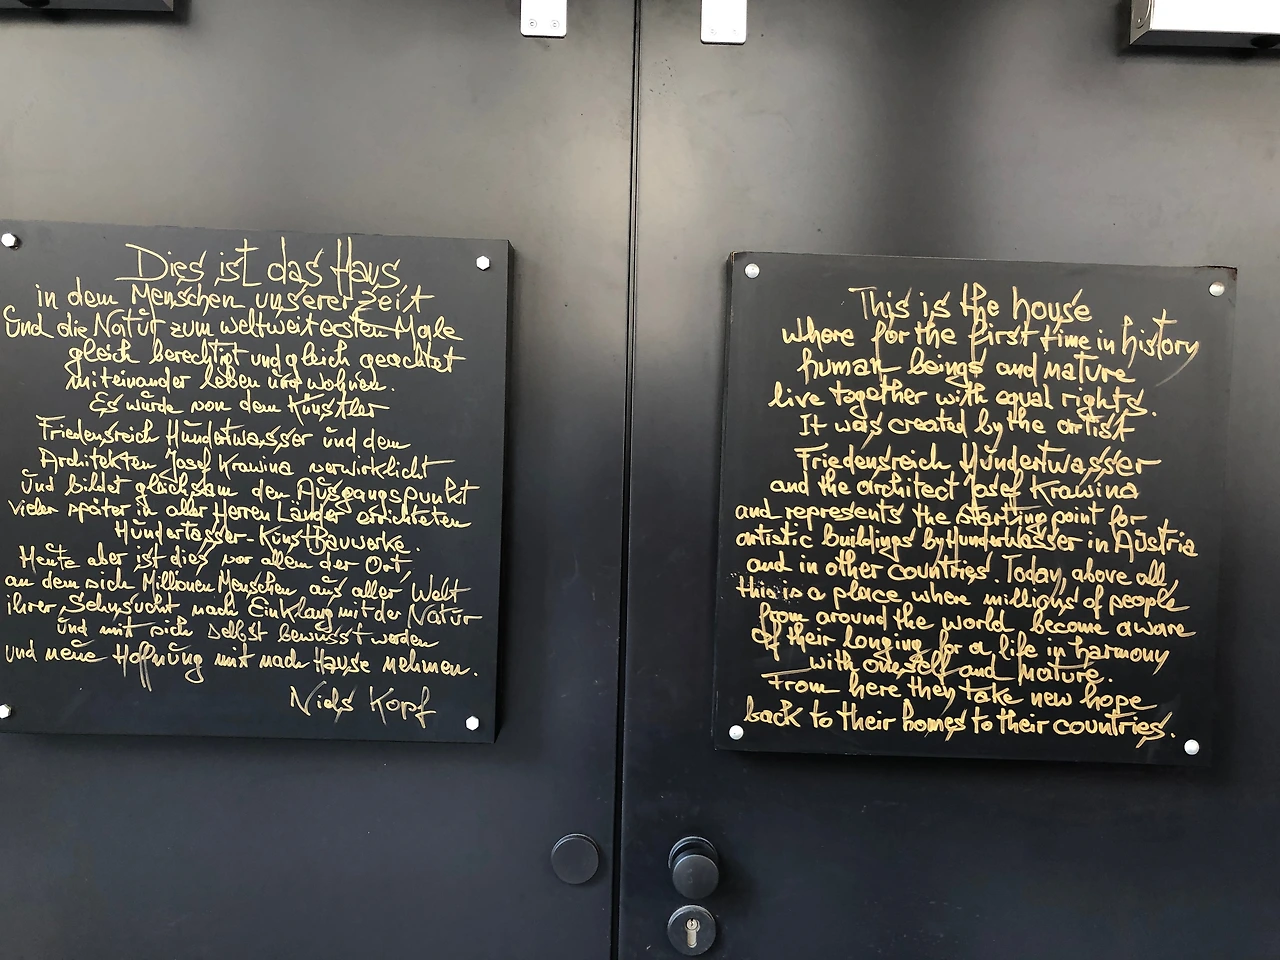 Dies ist das Haus,
in dem Menschen unserer Zeit
und die Natur zum weltweit ersten Male
gleich berechtigt und gleich geachtet
miteinander leben und wohnen.
Es wurde von dem Künstler
Friedensreich Hundertwasser und dem
Architekten Josef Krawina verwirklicht
und bildet gleichsam den Ausgangspunkt
vieler später in aller Herren Länder errichteten
Hundertasser-Kunst Bauwerke.
Heute aber ist dies vor allem der Ort
an dem sich Millionen Menschen aus aller Welt
ihrer Sehnsucht nach Einklang mit der Natur
und mit sich selbst bewusst werden
und neue Hoffnung mit nach Hause nehmen.
Niels Kopf
This is the house
where for the first time in history
human beings and nature
live together with equal rights.
It was created by the artist
Friedensreich Hundertwasser
and the architect Josef Krawina
and represents the starting point for
artistic buildings by Hundertwasser in Austria
and in other countries. Today, above all,
this is a place where millions of people
from around the world become aware
of their longing for a life in harmony
with oneself and nature.
From here they take new hope
back to their homes to their countries.